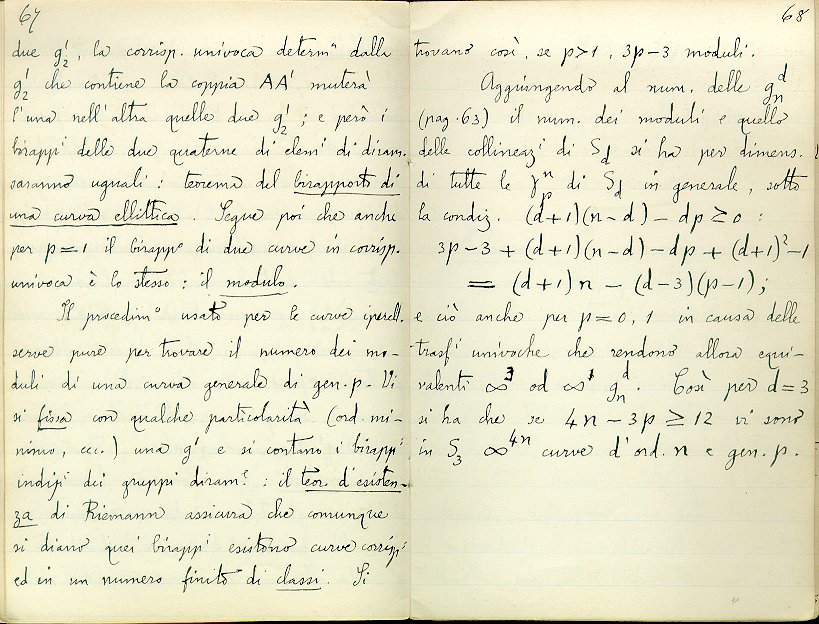 67
due g'₂, la corrisp. univoca determⁿ dalla
g'₂ che contiene la coppia AA' muterà
l'una nell'altra quelle due g'₂ ; e però i
birappⁱ delle due quaterne di elemⁱ di diram.
saranno uguali : teorema del birapporto di
una curva ellittica. Segue poi che anche
per p=1 il birappᵒ di due curve in corrisp.
univoca è lo stesso : il modulo.
Il procedimᵒ usato per le curve iperell.
serve pure per trovare il numero dei mo-
duli di una curva generale di gen. p. Vi
si fissa con qualche particolarità (ord. mi-
nimo, ecc.) una g' e si contano i birappⁱ
indipⁱ dei gruppi diramᵉ : il teor. d'esisten-
za di Riemann assicura che comunque
si diano quei birappⁱ esistono curve corrispⁱ
ed in un numero finito di classi. Si
68
trovano così, se p>1, 3p-3 moduli.
Aggiungendo al num. delle gₙᵈ
(pag. 63) il num. dei moduli e quello
delle collineazⁱ di S_d si ha per dimens.
di tutte le γₚⁿ di S_d in generale, sotto
la condiz. (d+1)(n-d) - dp ≥ 0 :
3p-3 + (d+1)(n-d) - dp + (d+1)²-1
= (d+1)n - (d-3)(p-1) ;
e ciò anche per p=0, 1 in causa delle
trasfⁱ univoche che rendono allora equi-
valenti ∞³ od ∞¹ gₙᵈ. Così per d=3
si ha che se 4n-3p ≥ 12 vi sono
in S₃ ∞⁴ⁿ curve d'ord. n e gen. p.